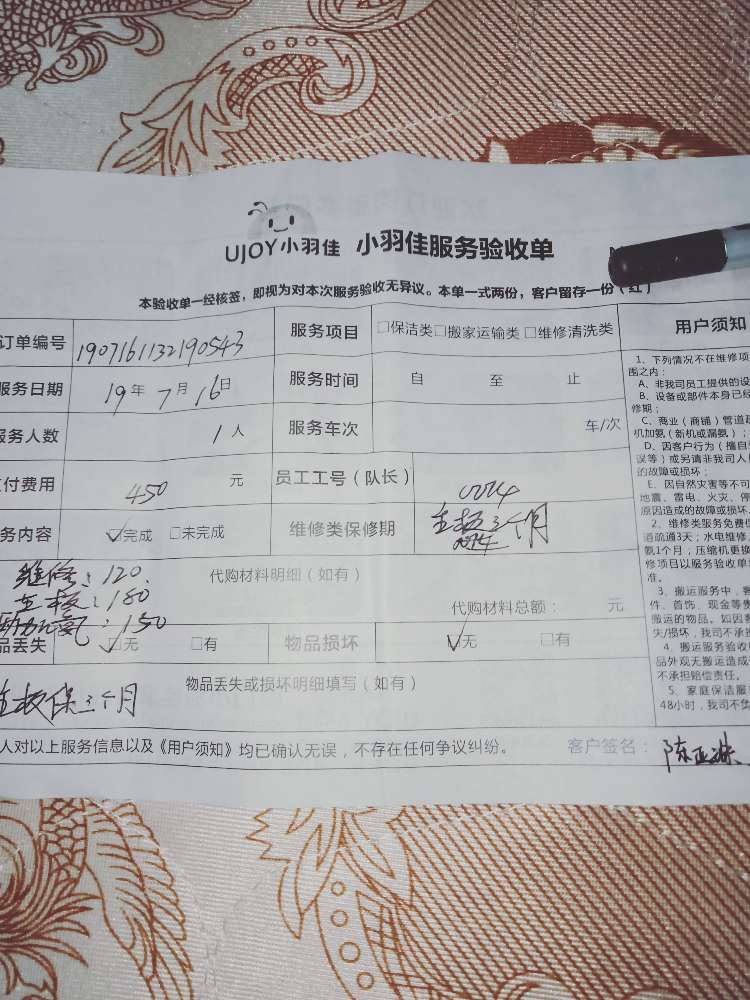 UJOY小羽佳 小羽佳服务验收单
本验收单一经核签，即视为对本次服务验收无异议。本单一式两份，客户留存一份（红）
订单编号 1907161132190543 服务项目 □保洁类□搬家运输类□维修清洗类 用户须知
服务日期 19年7月16日 服务时间 自 至 止
服务人数 1人 服务车次 车/次
付费用 450 元 员工工号（队长）
务内容 ☑完成 □未完成 维修类保修期 主板三个月
维修：120. 代购材料明细（如有）
主板：180
加氨：150 代购材料总额： 元
品丢失 ☑无 □有 物品损坏 ☑无 □有
主板保三个月 物品丢失或损坏明细填写（如有）
人对以上服务信息以及《用户须知》均已确认无误，不存在任何争议纠纷。 客户签名：
1、下列情况不在维修项
围之内：
A、非我司员工提供的设
B、设备或部件本身已经
修期；
C、商业（商铺）管道疏
机加氨（新机或漏氨）；
D、因客户行为（擅自
误等）或另请非我司人员
的故障或损坏；
E、因自然灾害等不可
地震、雷电、火灾、停
原因造成的故障或损坏。
2、维修类服务免费保
道疏通3天；水电维修、
氨1个月；压缩机更换
修项目以服务验收单填
准。
3、搬运服务中，客
件、首饰、现金等贵
搬运的物品。如因客
失/损坏，我司不承担
4、搬运服务验收时
品外观无搬运造成
不承担赔偿责任。
5、家庭保洁服
48小时，我司不负